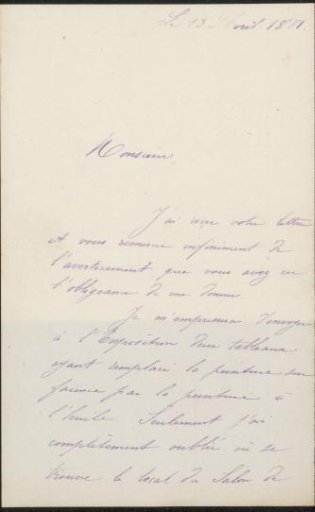 Le 13 Avril 1881.
Monsieur
J'ai reçu votre lettre
et vous remercie infiniment de
l'avertissement que vous avez eu
l'obligeance de me donner
Je m'empresse d'envoyer
à l'Exposition deux tableaux
ayant remplacé la peinture sur
faience par la peinture à
l'huile. Seulement j'ai
complètement oublié où se
trouve le local du Salon de